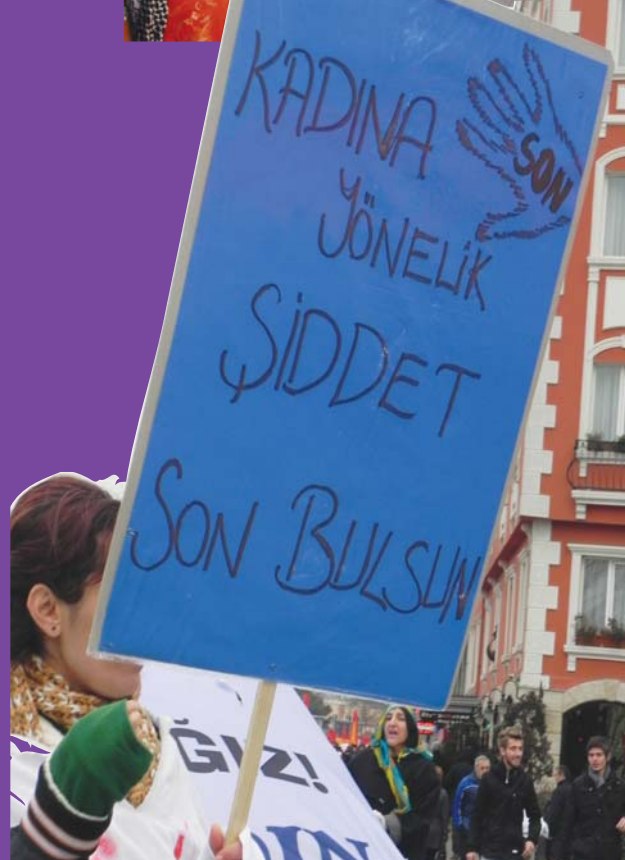 KADINA
SON
YÖNELİK
ŞİDDET
SON BULSUN
ĞIZ!
DIN